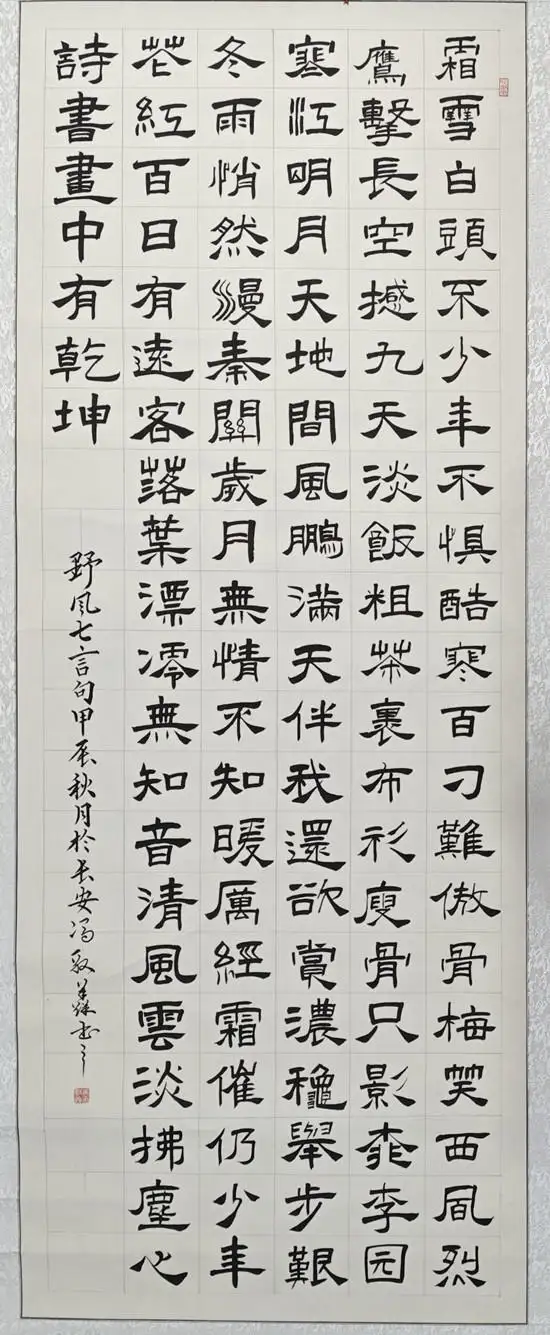 霜雪白頭不少年不惧酷寒百刁難傲骨梅笑西風烈
鷹擊長空撼九天淡飯粗茶裹布衫瘦骨只影桃李园
寒江明月天地間風鵬滿天伴我還欲賞濃穐舉步艱
冬雨悄然漫秦關歲月無情不知暖厲經霜催仍少年
花紅百日有遠客落葉漂澪無知音清風雲淡拂塵心
詩書畫中有乾坤
野风七言句甲辰秋月於长安冯書之